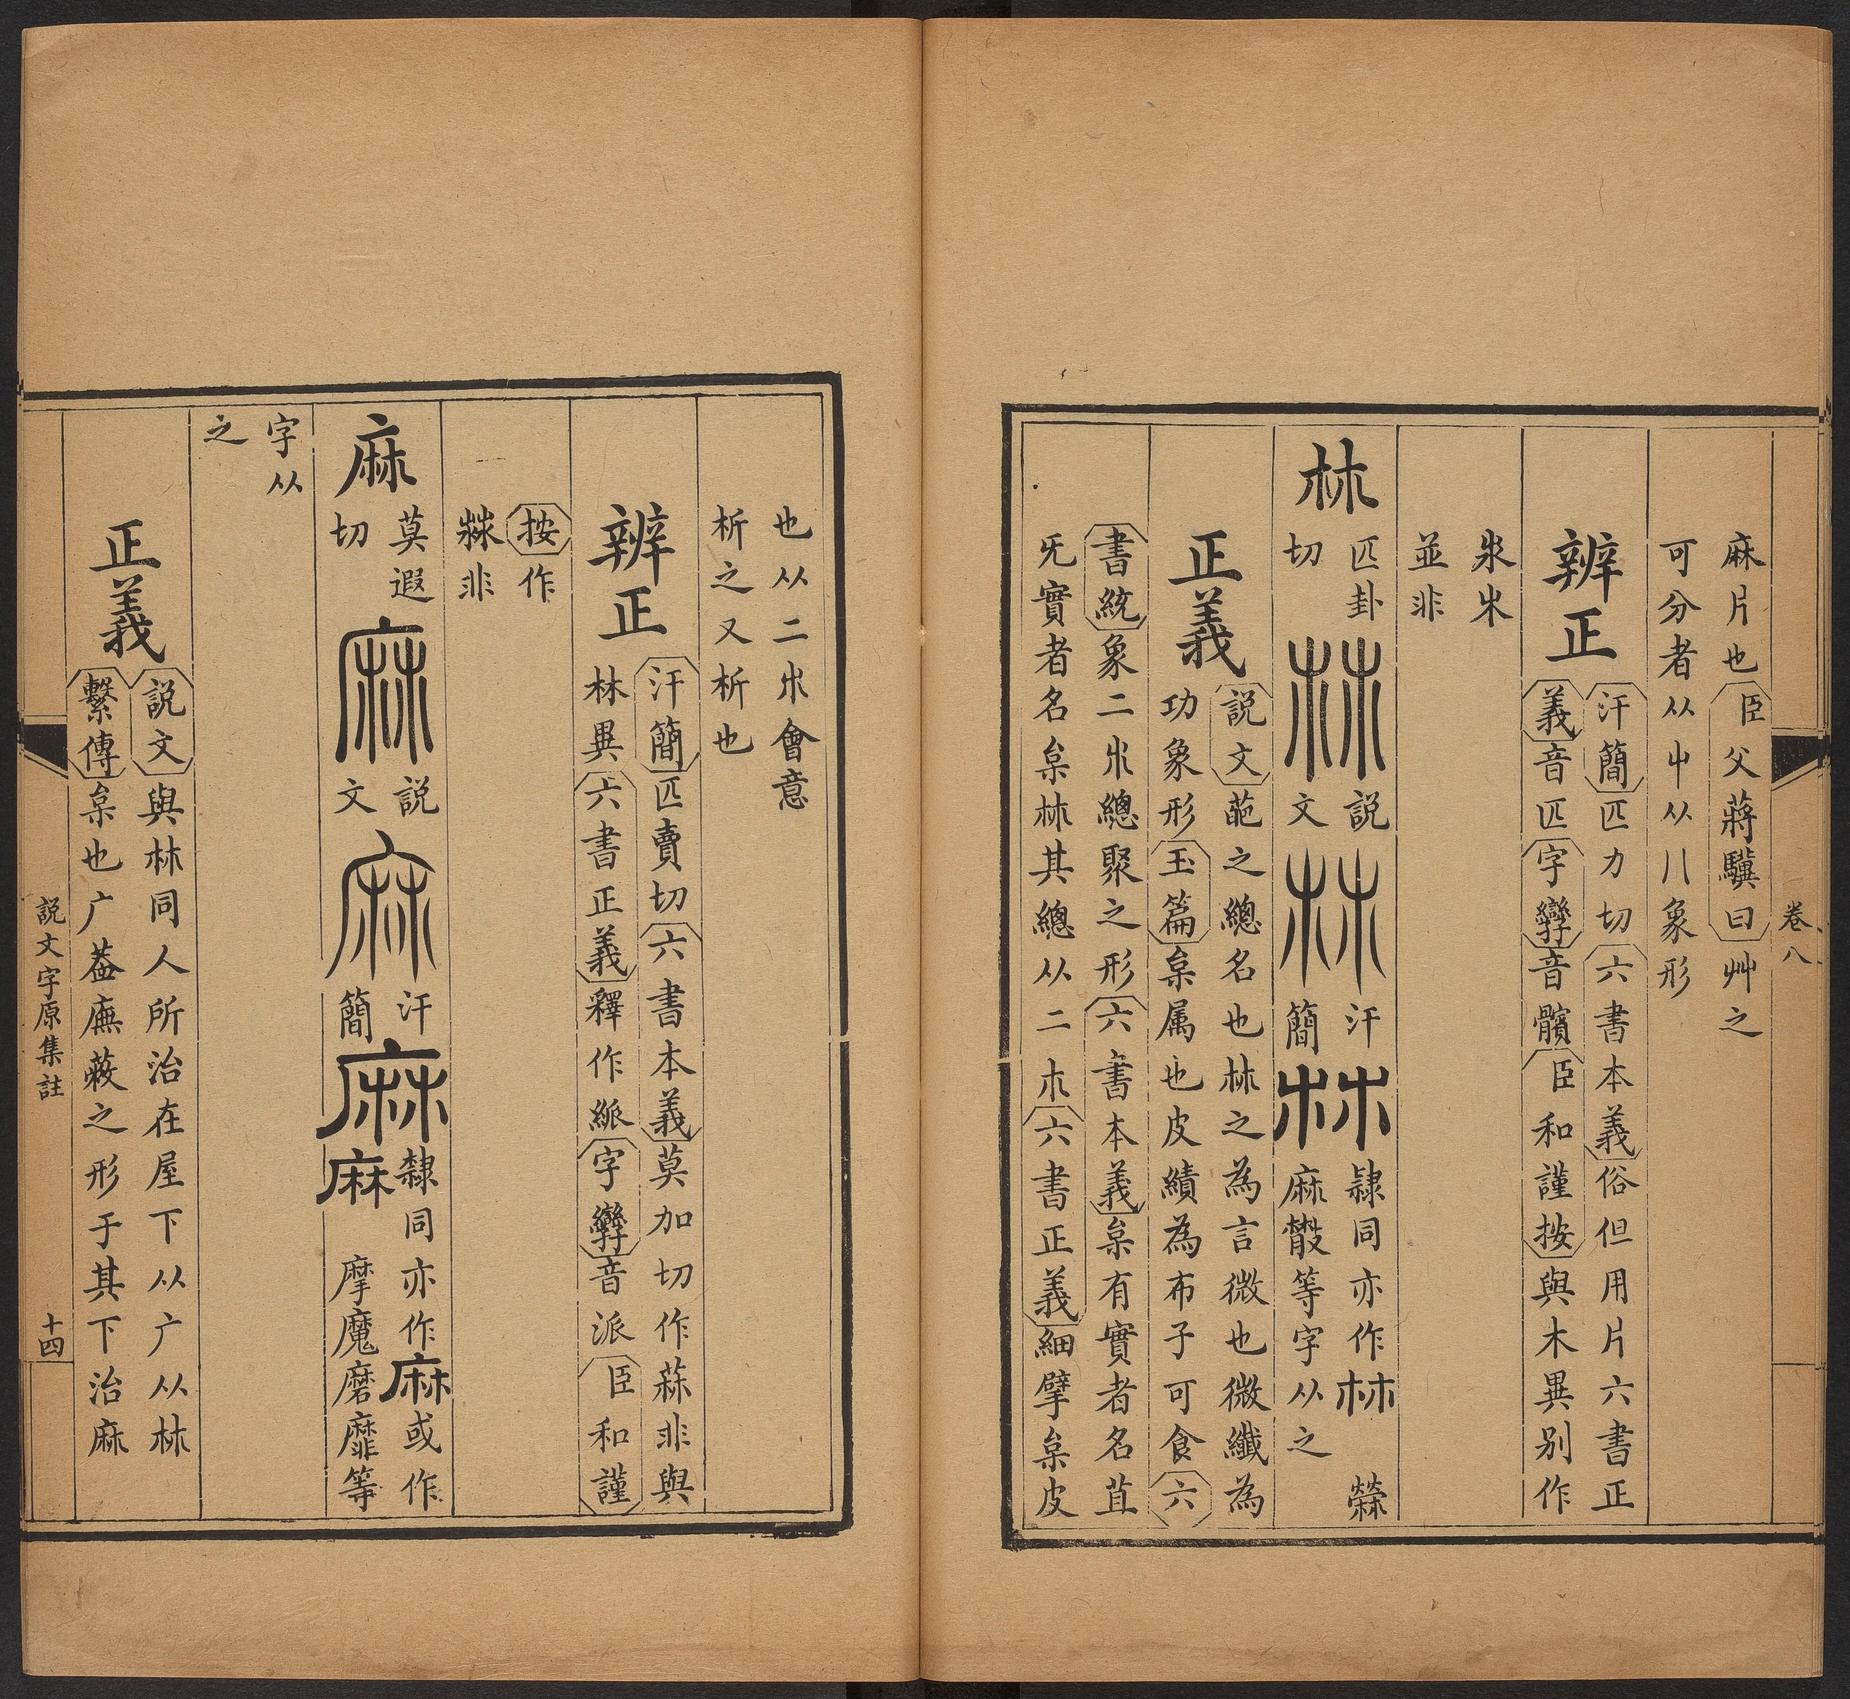 卷八
麻片也臣父蔣驥曰艸之
可分者从屮从八象形
辨正
汗簡匹力切六書本義俗但用片六書正
義音匹字孿音髕臣和謹按與木異別作
並非
𣏟
匹卦
切
說
文
汗
簡
隸同亦作𣏟
麻㪚等字从之
正義
說文葩之總名也𣏟之為言微也微纖為
功象形玉篇枲属也皮績為布子可食六
書統象二𣎳總聚之形六書本義枲有實者名苴
旡實者名枲𣏟其總从二𣎳六書正義細擘枲皮
也从二𣎳會意
析之又析也
辨正
汗簡匹賣切六書本義莫加切作蔴非與
林異六書正義釋作𠂢字孿音派臣和謹
按作
非
麻
莫遐
切
說
文
汗
簡
隸同亦作麻或作
摩魔磨靡等
字从
之
正義
說文與𣏟同人所治在屋下从广从𣏟
繫傳枲也广葢廡蔽之形于其下治麻
說文字原集註
十四